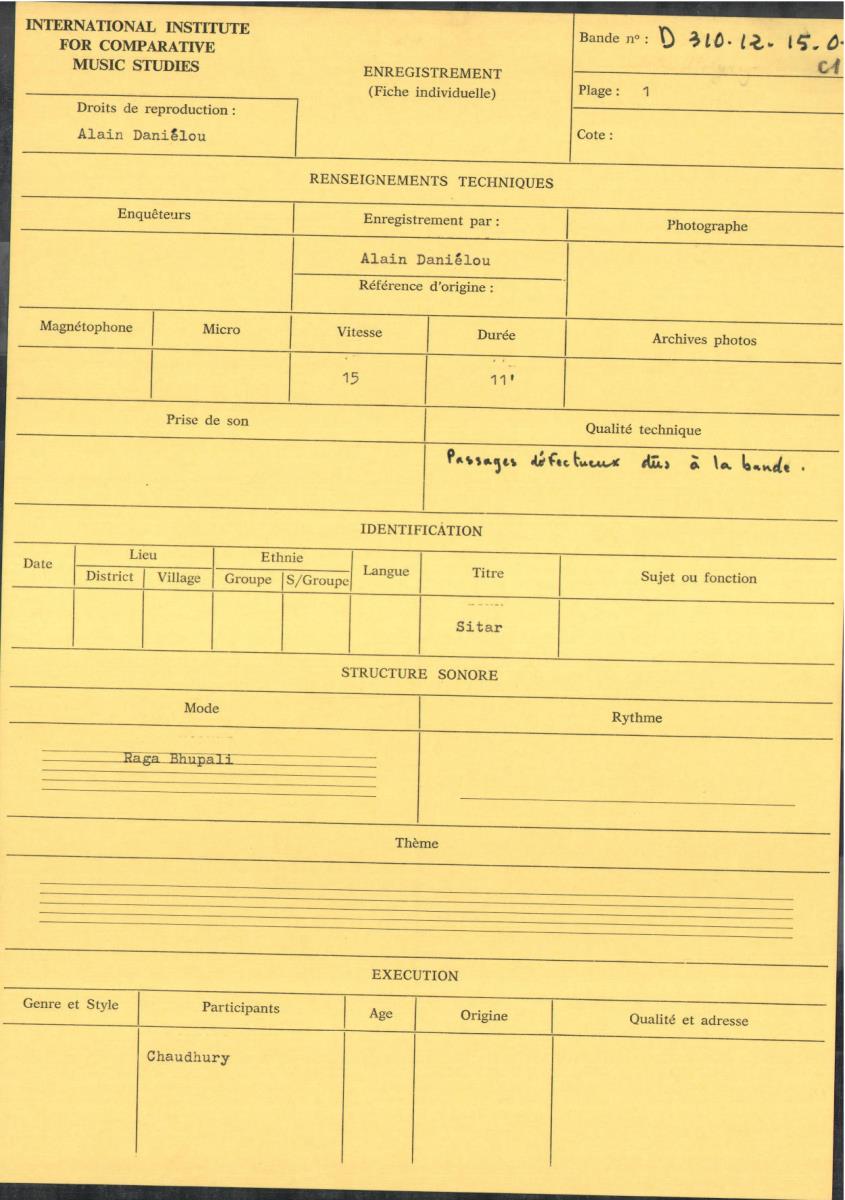 INTERNATIONAL INSTITUTE
FOR COMPARATIVE
MUSIC STUDIES
Droits de reproduction :
Alain Daniélou
ENREGISTREMENT
(Fiche individuelle)
Bande nº : D 310.12. 15.0
C1
Plage : 1
Cote :
RENSEIGNEMENTS TECHNIQUES
Enquêteurs
Enregistrement par :
Photographe
Alain Daniélou
Référence d'origine :
Magnétophone Micro Vitesse Durée Archives photos
15 11'
Prise de son Qualité technique
Passages défectueux dûs à la bande .
IDENTIFICATION
Date Lieu Ethnie Langue Titre Sujet ou fonction
District Village Groupe S/Groupe
Sitar
STRUCTURE SONORE
Mode Rythme
Raga Bhupali
Thème
EXECUTION
Genre et Style Participants Age Origine Qualité et adresse
Chaudhury